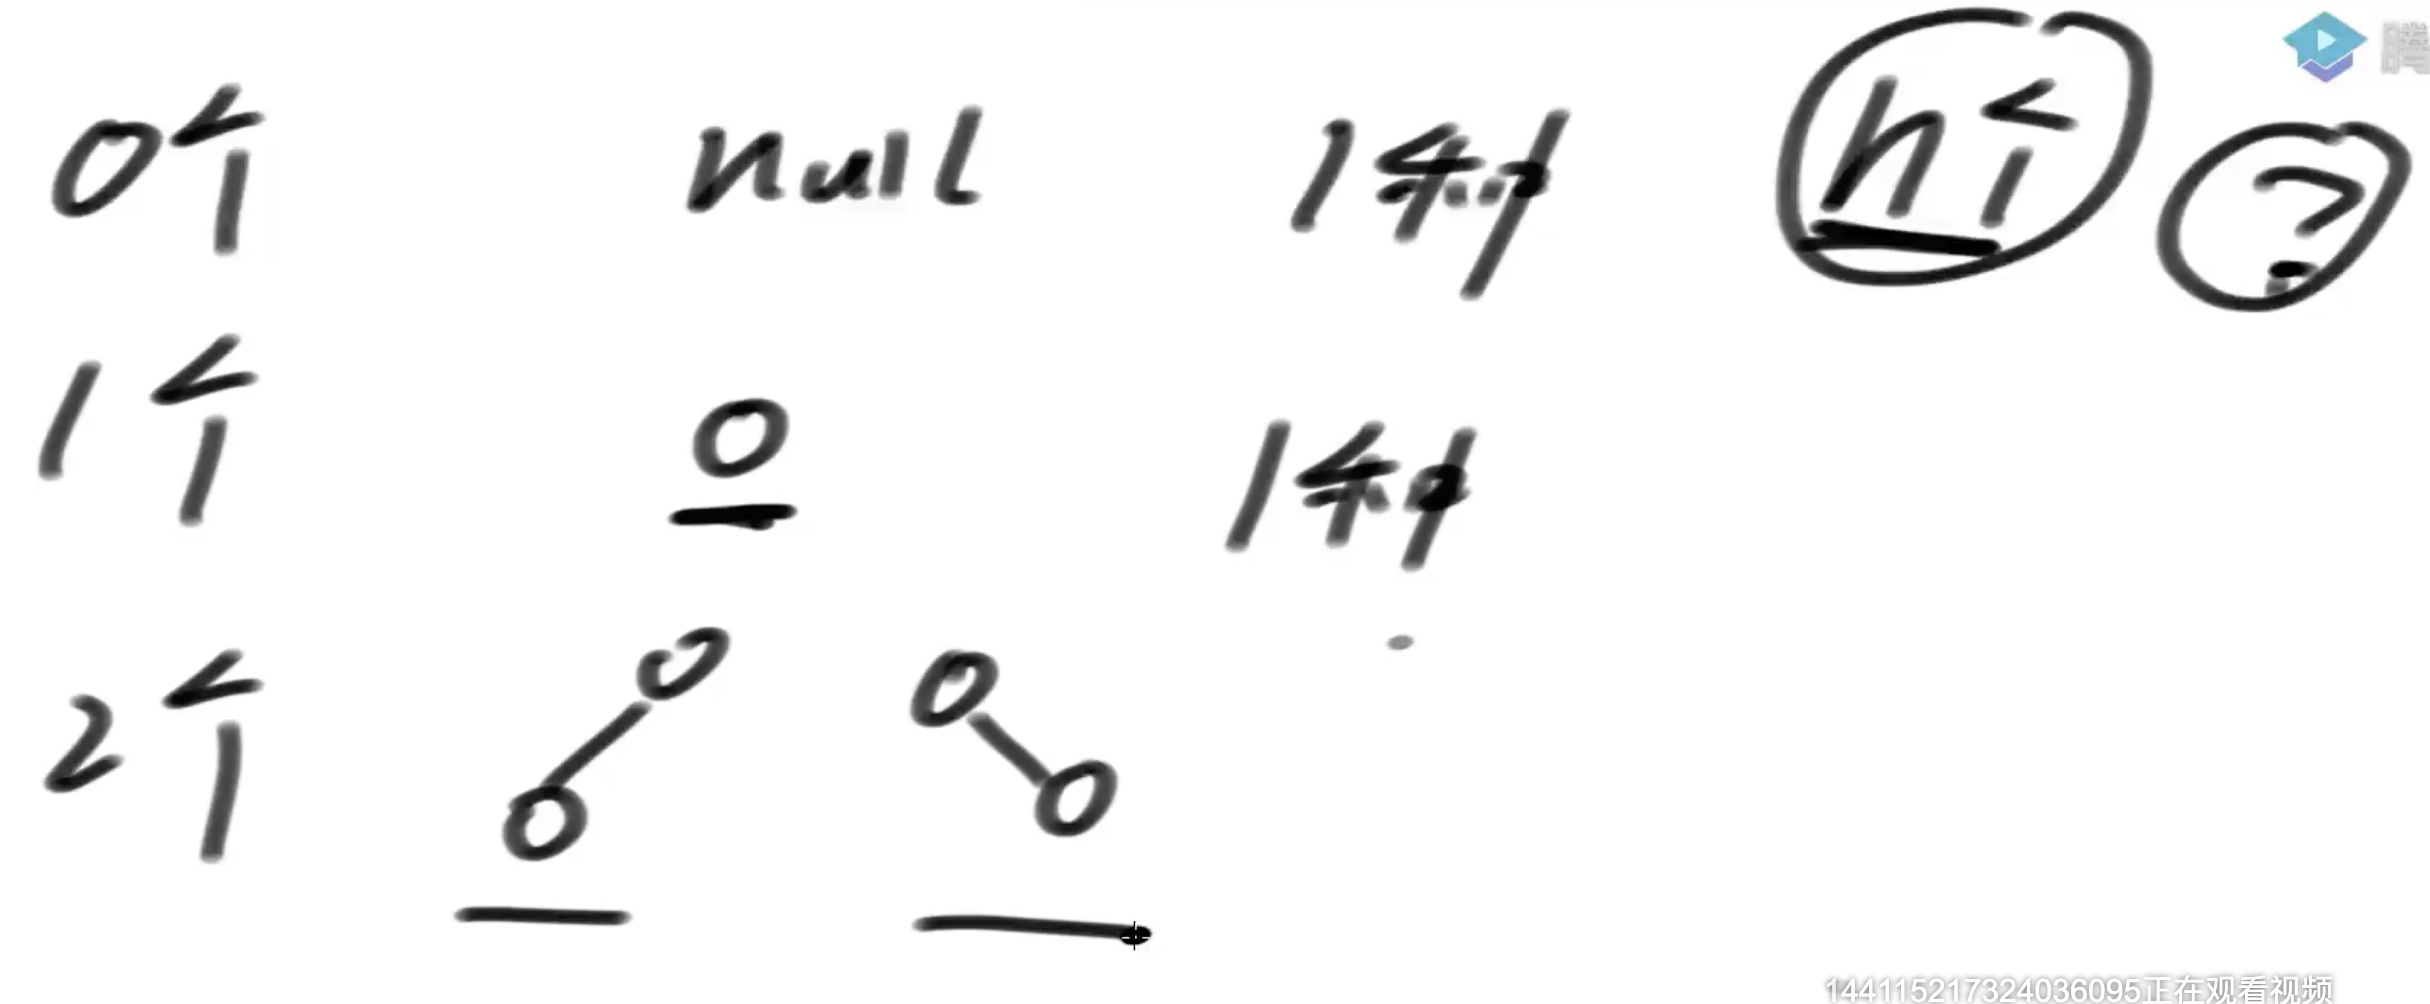 0个 null 1种 n个 ?
腾
1个 0 1种
2个
144115217324036095正在观看视频